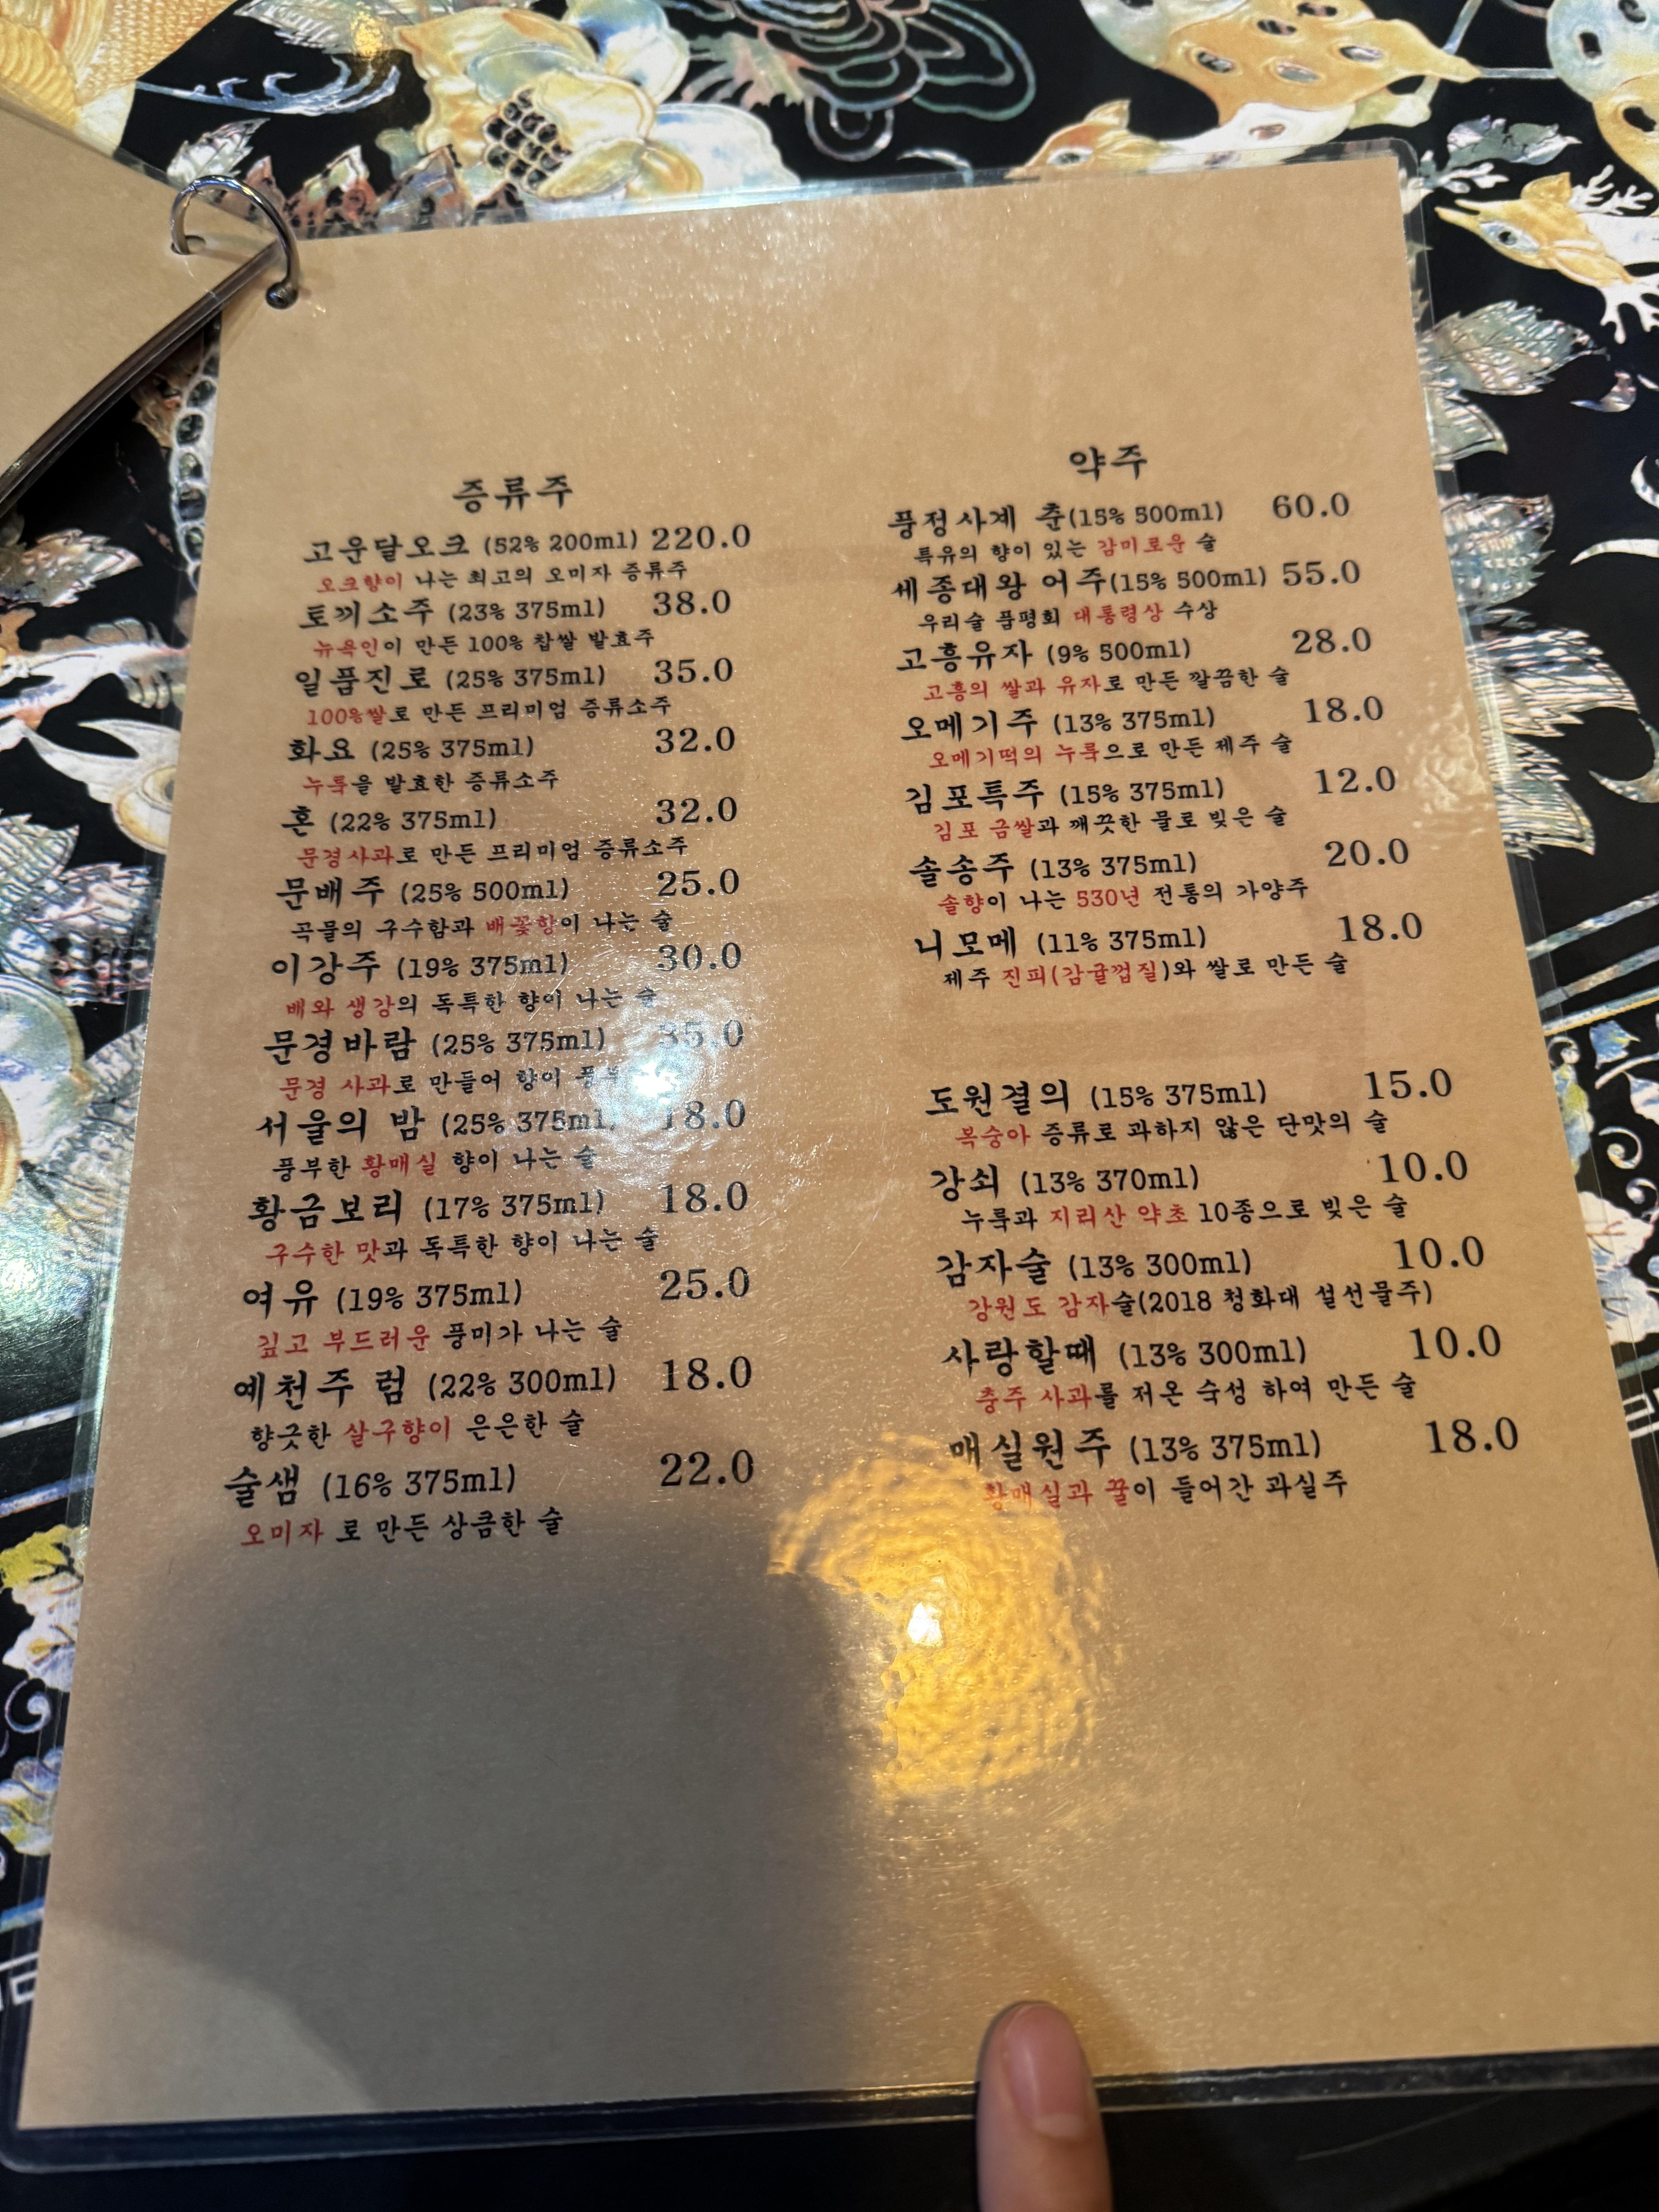 증류주
고운달오크 (52% 200ml) 220.0
오크향이 나는 최고의 오미자 증류주
토끼소주 (23% 375ml) 38.0
뉴욕인이 만든 100% 찹쌀 발효주
일품진로 (25% 375ml) 35.0
100%쌀로 만든 프리미엄 증류소주
화요 (25% 375ml) 32.0
누룩을 발효한 증류소주
혼 (22% 375ml) 32.0
문경사과로 만든 프리미엄 증류소주
문배주 (25% 500ml) 25.0
곡물의 구수함과 배꽃향이 나는 술
이강주 (19% 375ml) 30.0
배와 생강의 독특한 향이 나는 술
문경바람 (25% 375ml) 35.0
문경 사과로 만들어 향이
서울의 밤 (25% 375ml) 18.0
풍부한 황매실 향이 나는 술
황금보리 (17% 375ml) 18.0
구수한 맛과 독특한 향이 나는 술
여유 (19% 375ml) 25.0
깊고 부드러운 풍미가 나는 술
예천주 럼 (22% 300ml) 18.0
향긋한 살구향이 은은한 술
술샘 (16% 375ml) 22.0
오미자 로 만든 상큼한 술
약주
풍정사계 춘(15% 500ml) 60.0
특유의 향이 있는 감미로운 술
세종대왕 어주(15% 500ml) 55.0
우리술 품평회 대통령상 수상
고흥유자 (9% 500ml) 28.0
고흥의 쌀과 유자로 만든 깔끔한 술
오메기주 (13% 375ml) 18.0
오메기떡의 누룩으로 만든 제주 술
김포특주 (15% 375ml) 12.0
김포 금쌀과 깨끗한 물로 빚은 술
솔송주 (13% 375ml) 20.0
솔향이 나는 530년 전통의 가양주
니모메 (11% 375ml) 18.0
제주 진피(감귤껍질)와 쌀로 만든 술
도원결의 (15% 375ml) 15.0
복숭아 증류로 과하지 않은 단맛의 술
강쇠 (13% 370ml) 10.0
누룩과 지리산 약초 10종으로 빚은 술
감자술 (13% 300ml) 10.0
강원도 감자술(2018 청화대 설선물주)
사랑할때 (13% 300ml) 10.0
충주 사과를 저온 숙성 하여 만든 술
매실원주 (13% 375ml) 18.0
황매실과 꿀이 들어간 과실주